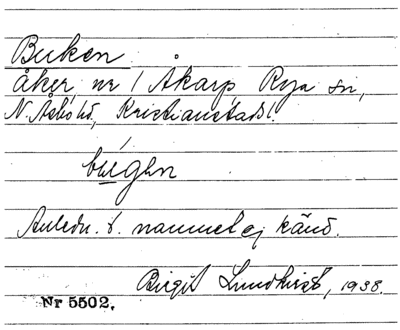 Buken
åker nr 1 Åkarp Rya sn,
N. Åsbo hd, Kristianstads l.
bu̲gen
Anledn. t. namnet ej känd.
Birgit Lundkvist, 1938.
Nr 5502.